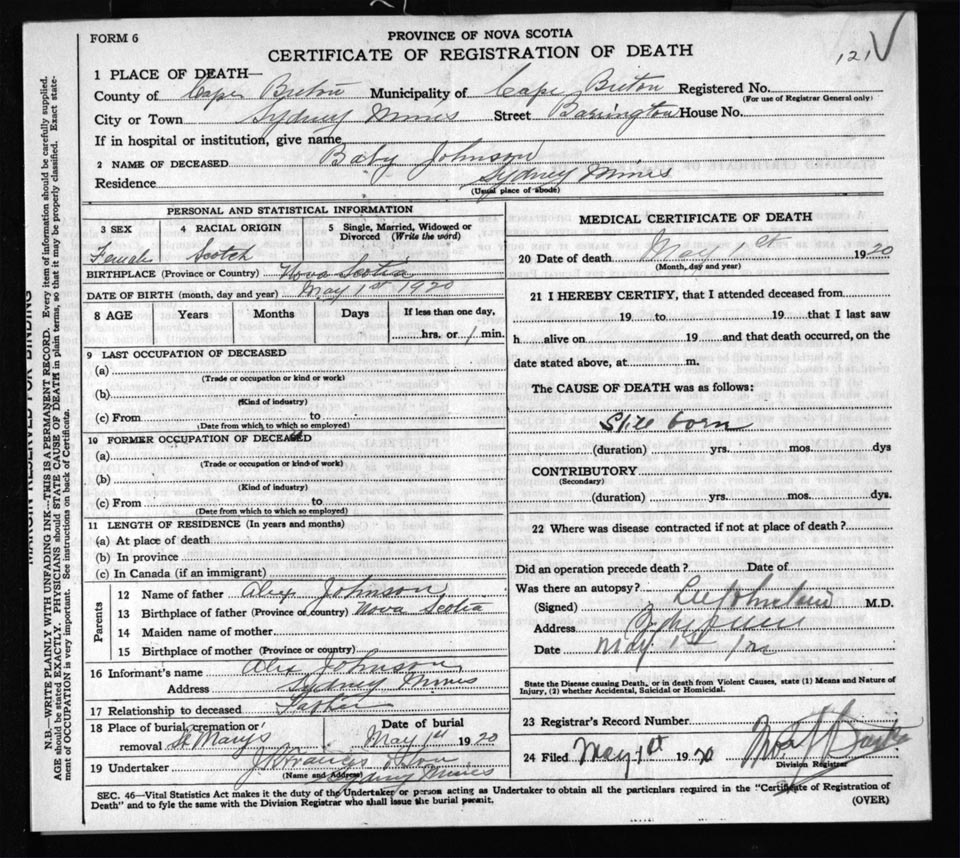 FORM 6
PROVINCE OF NOVA SCOTIA
CERTIFICATE OF REGISTRATION OF DEATH
121 V
1 PLACE OF DEATH—
County of Cape Breton Municipality of Cape Breton Registered No.
(For use of Registrar General only)
City or Town Sydney Mines Street Barrington House No.
If in hospital or institution, give name
2 NAME OF DECEASED Baby Johnson
Residence Sydney Mines
(Usual place of abode)
PERSONAL AND STATISTICAL INFORMATION
3 SEX 4 RACIAL ORIGIN 5 Single, Married, Widowed or Divorced (Write the word)
Female Scotch
BIRTHPLACE (Province or Country) Nova Scotia
DATE OF BIRTH (month, day and year) May 1st 1920
8 AGE Years Months Days If less than one day,
hrs. or 1 min.
9 LAST OCCUPATION OF DECEASED
(a)
(Trade or occupation or kind of work)
(b)
(Kind of industry)
(c) From to
(Date from which to which so employed)
10 FORMER OCCUPATION OF DECEASED
(a)
(Trade or occupation or kind of work)
(b)
(Kind of industry)
(c) From to
(Date from which to which so employed)
11 LENGTH OF RESIDENCE (In years and months)
(a) At place of death
(b) In province
(c) In Canada (if an immigrant)
Parents
12 Name of father Alex Johnson
13 Birthplace of father (Province or country) Nova Scotia
14 Maiden name of mother
15 Birthplace of mother (Province or country)
16 Informant's name Alex Johnson
Address Sydney Mines
17 Relationship to deceased Father
18 Place of burial, cremation or removal St Marys Date of burial May 1st 1920
19 Undertaker J & Son
(Name and Address) Sydney Mines
MEDICAL CERTIFICATE OF DEATH
20 Date of death May 1st 1920
(Month, day and year)
21 I HEREBY CERTIFY, that I attended deceased from
19 to 19 that I last saw
h alive on 19 and that death occurred, on the
date stated above, at m.
The CAUSE OF DEATH was as follows:
Still born
(duration) yrs. mos. dys
CONTRIBUTORY
(Secondary)
(duration) yrs. mos. dys.
22 Where was disease contracted if not at place of death?
Did an operation precede death? Date of
Was there an autopsy?
(Signed) M.D.
Address
Date May 1st
State the Disease causing Death, or in death from Violent Causes, state (1) Means and Nature of
Injury, (2) whether Accidental, Suicidal or Homicidal.
23 Registrar's Record Number
24 Filed May 1st 1920
Division Registrar
SEC. 46—Vital Statistics Act makes it the duty of the Undertaker or person acting as Undertaker to obtain all the particulars required in the "Certificate of Registration of
Death" and to fyle the same with the Division Registrar who shall issue the burial permit.
(OVER)
MARGIN RESERVED FOR BINDING
N.B.—WRITE PLAINLY WITH UNFADING INK—THIS IS A PERMANENT RECORD. Every item of information should be carefully supplied.
AGE should be stated EXACTLY. PHYSICIANS should STATE CAUSE OF DEATH in plain terms, so that it may be properly classified. Exact state-
ment of OCCUPATION is very important. See instructions on back of Certificate.